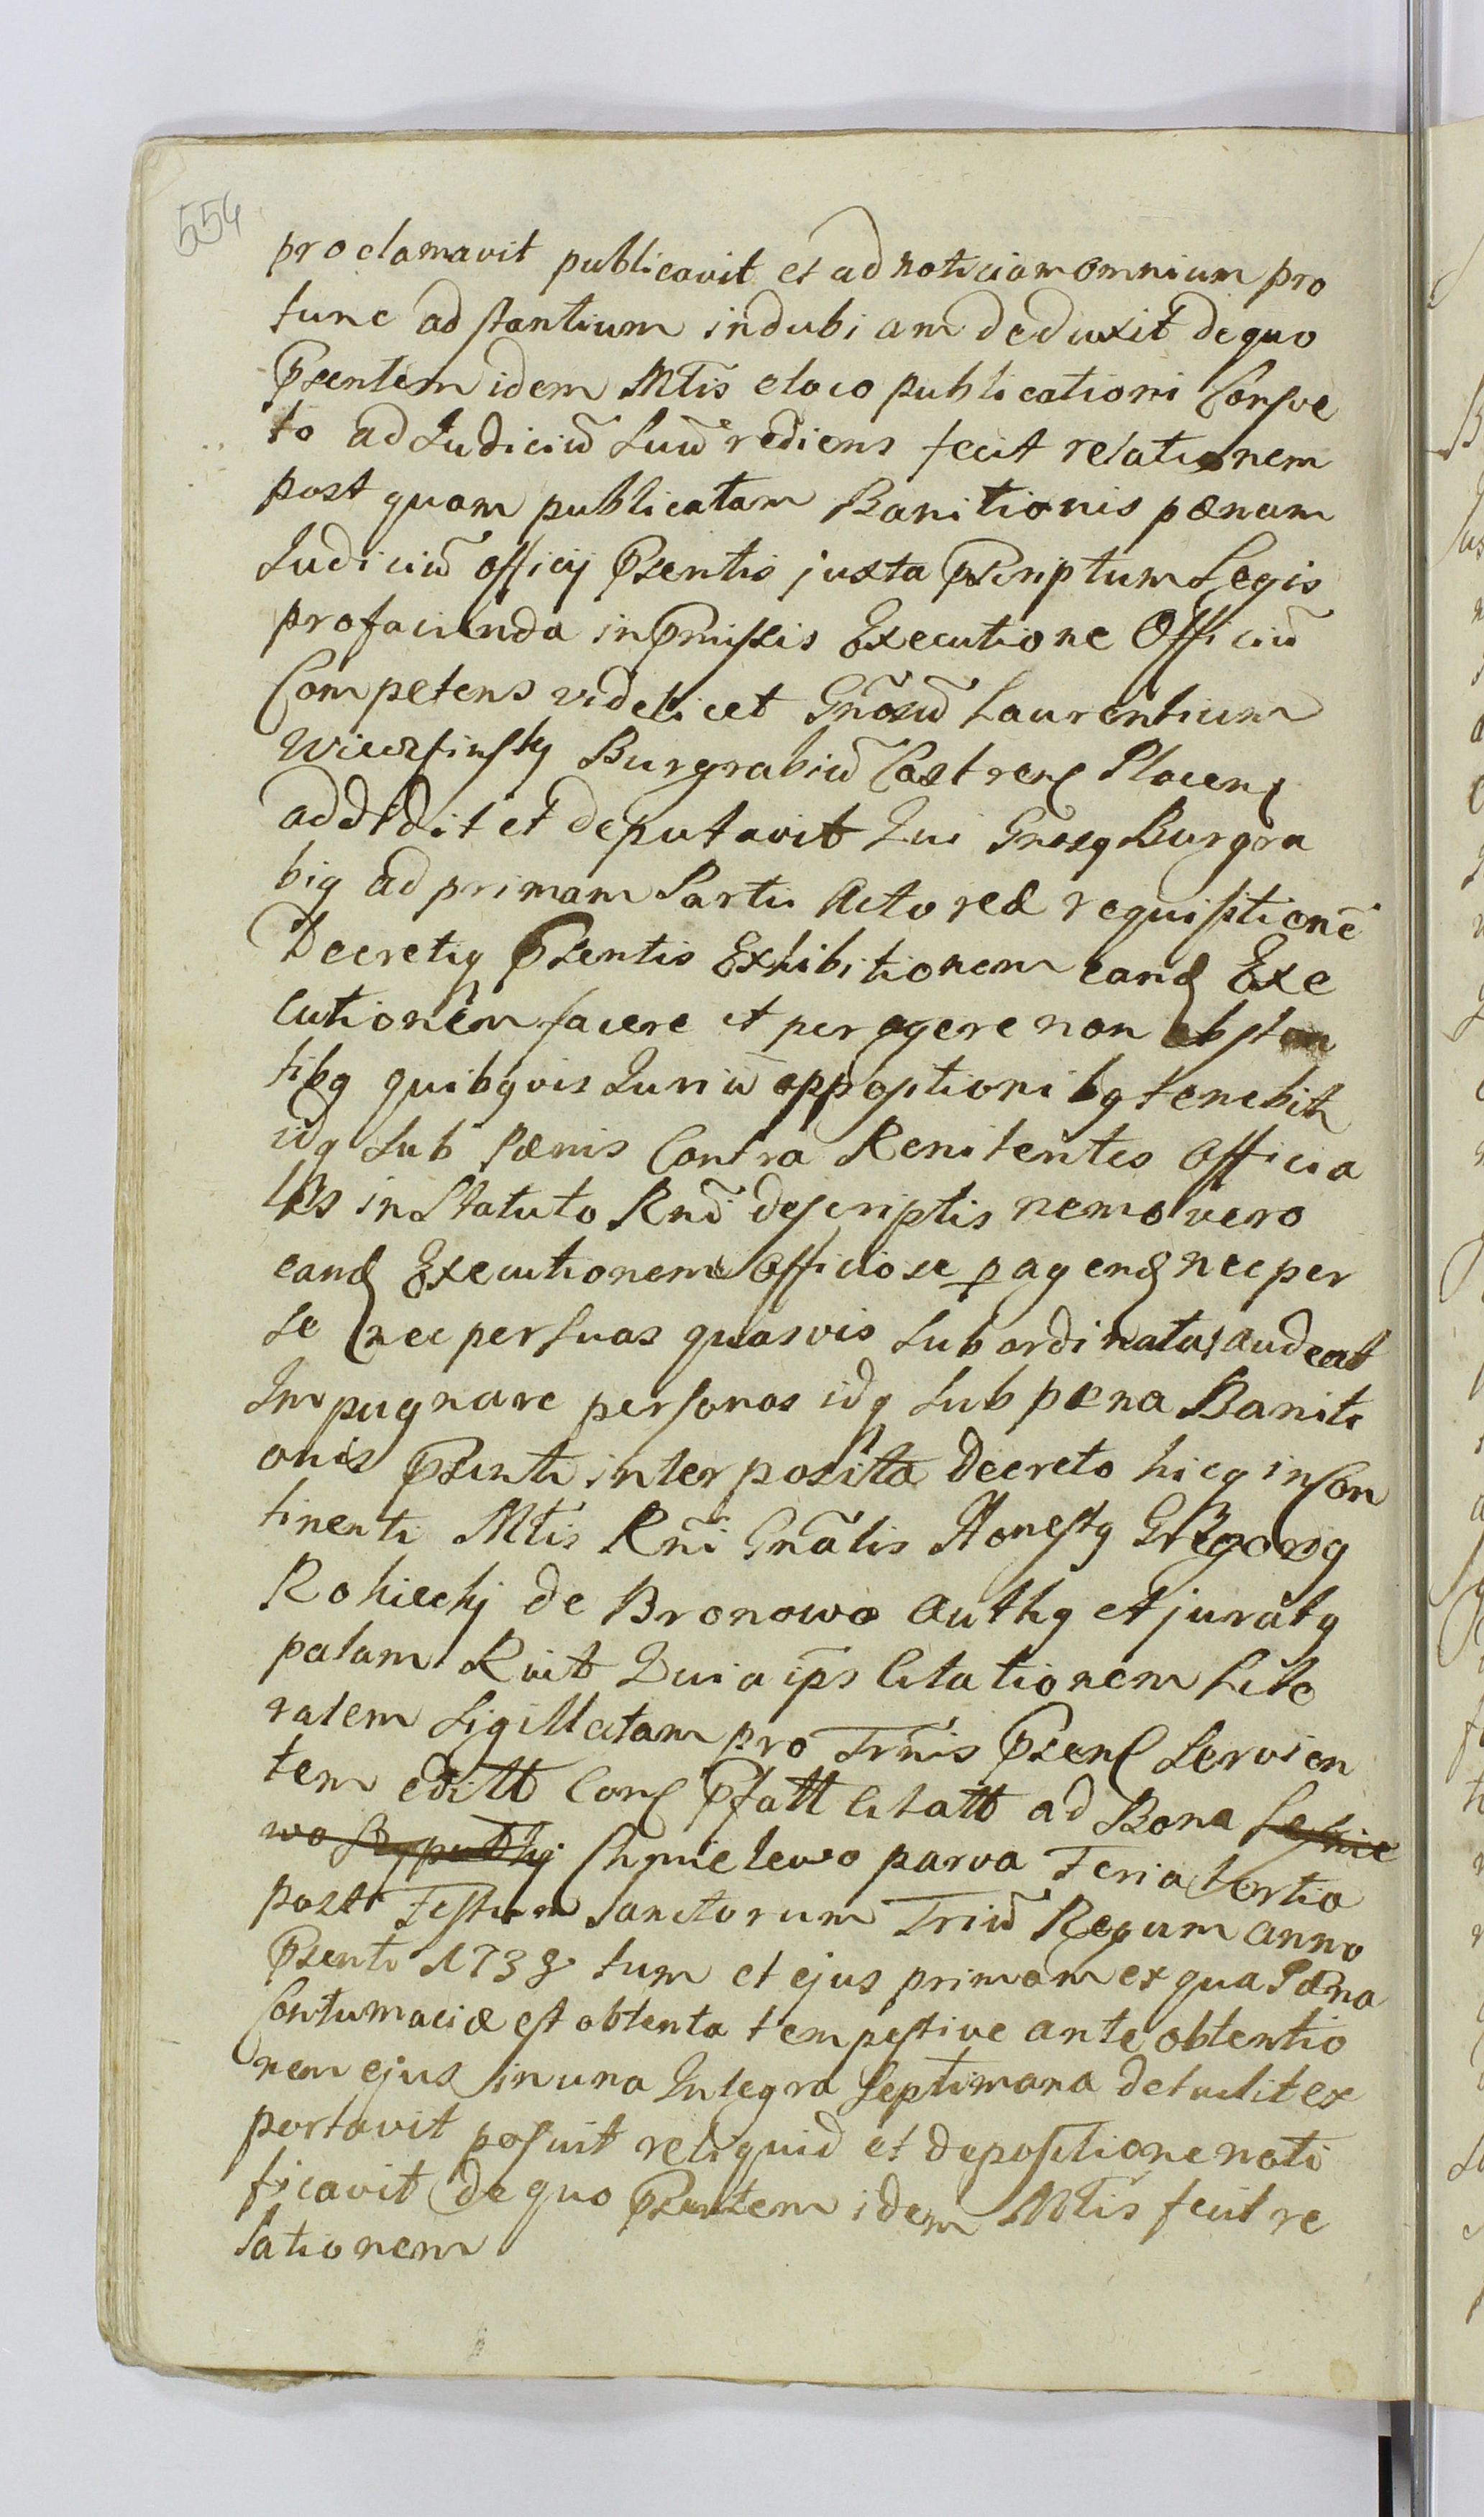 554
proclamavit publicavit et ad noticiam omnium pro
tunc adstantium indubiam deduxit de quo
Pxentem idem Mtis e loco publicationi Consve
to ad Judiciū Suū rediens fecit relationem
post quam publicatam Banitionis pænam
Judiciū officij Pxentis juxta Pxcriptum Legis
pro facienda in Pmissis Executione Officiū
Competens videlicet Gnōsū Laurentium
Burgrabiū Castren Plocen
addidit et deputavit Qui Gnosq Burgra
big ad primam Partis Actoreæ requisitionē
Decretiq Pxentis Exhibitionem eand Exe
cutionem facere et peragere non obstan
tibq quibqvis Juriū oppositionibq tenebit
idq Sub Pænis Contra Renitentes Officia
les in Statuto Rnī descriptis nemo vero
eand Executionem Officiose pagend nec per
Se nec per Suas quasvis Subordinatas audeat
Impugnare personas idq Sub pæna Baniti
onis Pxenti interposita Decreto hicq in Con
tinenti Mtis Rnī Gnālis Honestq Gregorig
de Bronowo Authq et juratq
palam Rvit Quia ips Citationem Lite
ralem Sigillatam pro Trnīs Pxen Servien
tem editt Con Pfatt Citatt ad Bona
Chmielewo parva Feria tertia
post Festum Sanctorum Triū Regum anno
Pxenti 1738 tum et ejus primam ex qua Pæna
Contumaciæ est obtenta tempestive ante obtentio
nem ejus in una Integra Septimana detulit ex
portavit posuit reliquid et depositione noti
ficavit de quo Pxentem idem Mtis fecit re
lationem